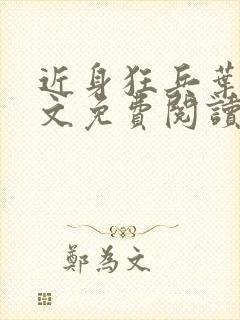 近身狂兵葉
文免費閱讀
鄭為文